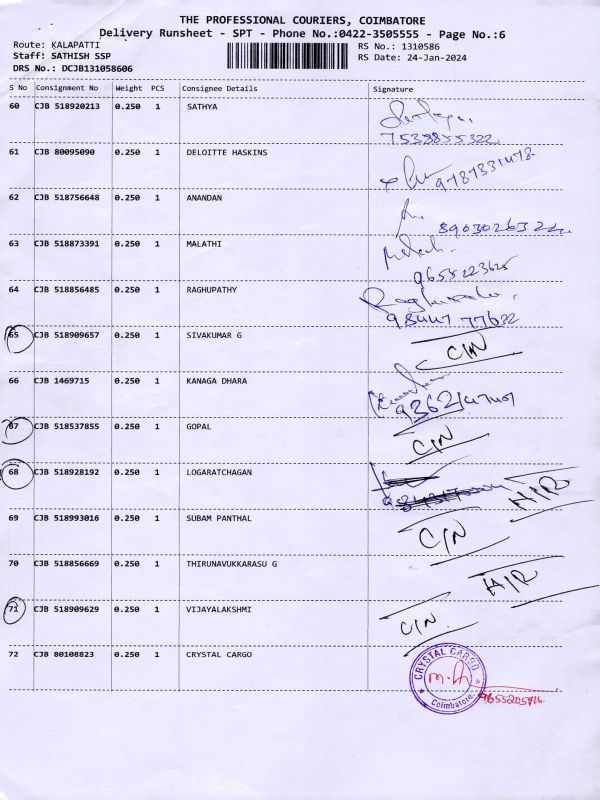 THE PROFESSIONAL COURIERS, COIMBATORE
Delivery Runsheet - SPT - Phone No.:0422-3505555 - Page No.:6
Route: KALAPATTI
RS No.: 1310586
Staff: SATHISH SSP
RS Date: 24-Jan-2024
DRS No.: DCJB131058606
S No Consignment No Weight PCS Consignee Details Signature
60 CJB 518920213 0.250 1 SATHYA
7538855322
61 CJB 80095090 0.250 1 DELOITTE HASKINS
9787331478
62 CJB 518756648 0.250 1 ANANDAN
63 CJB 518873391 0.250 1 MALATHI
64 CJB 518856485 0.250 1 RAGHUPATHY
65 CJB 518909657 0.250 1 SIVAKUMAR G C/N
66 CJB 1469715 0.250 1 KANAGA DHARA
67 CJB 518537855 0.250 1 GOPAL C/N
68 CJB 518928192 0.250 1 LOGARATCHAGAN H/R
69 CJB 518993016 0.250 1 SUBAM PANTHAL C/N
70 CJB 518856669 0.250 1 THIRUNAVUKKARASU G H/R
71 CJB 518909629 0.250 1 VIJAYALAKSHMI C/N
72 CJB 80108823 0.250 1 CRYSTAL CARGO
CRYSTAL CARGO
Coimbatore